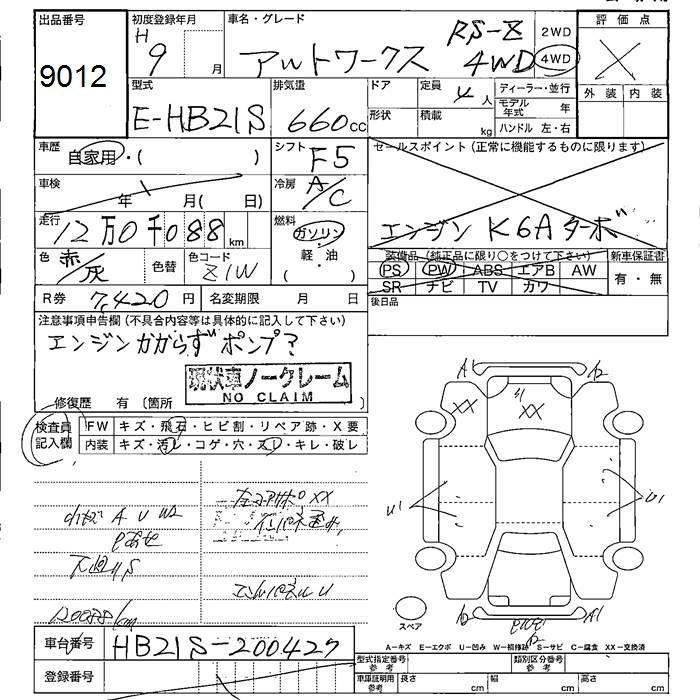 出品番号
9012
初度登録年月
H
9 月
車名・グレード
アルトワークス RS-Z 4WD
2WD
4WD
評価点
外装 内装
型式
E-HB21S
排気量
660cc
ドア
形状
定員
4人
積載
kg
ディーラー・並行
モデル年式 年
ハンドル 左・右
車歴
自家用・( )
シフト
F5
セールスポイント(正常に機能するものに限ります)
エンジン K6A ターボ
車検
年 月( 日)
冷房
A/C
走行
12万0千088km
燃料
ガソリン
軽・油
( )
色
赤/灰
色替
色コード
Z1W
装備品(純正品に限り○をつけて下さい)
PS PW ABS エアB AW
SR ナビ TV カワ
新車保証書
有・無
R券 7,420円
名変期限 月 日
後日品
注意事項申告欄(不具合内容等は具体的に記入して下さい)
エンジンかからず ポンプ?
現状車ノークレーム
NO CLAIM
修復歴 有(箇所 )
検査員記入欄
FW キズ・飛石・ヒビ割・リペア跡・X要
内装 キズ・汚レ・コゲ・穴・スレ・キレ・破レ
A1
A2
XX
XX
U1
U1
A1
スペア
下廻りS
120088km
A-キズ E-エクボ U-凹み W-補修跡 S-サビ C-腐食 XX-交換済
車台番号
HB21S-200427
登録番号
型式指定番号
参考
類別区分番号
参考
車庫証明用
参考
長さ cm
幅 cm
高さ cm